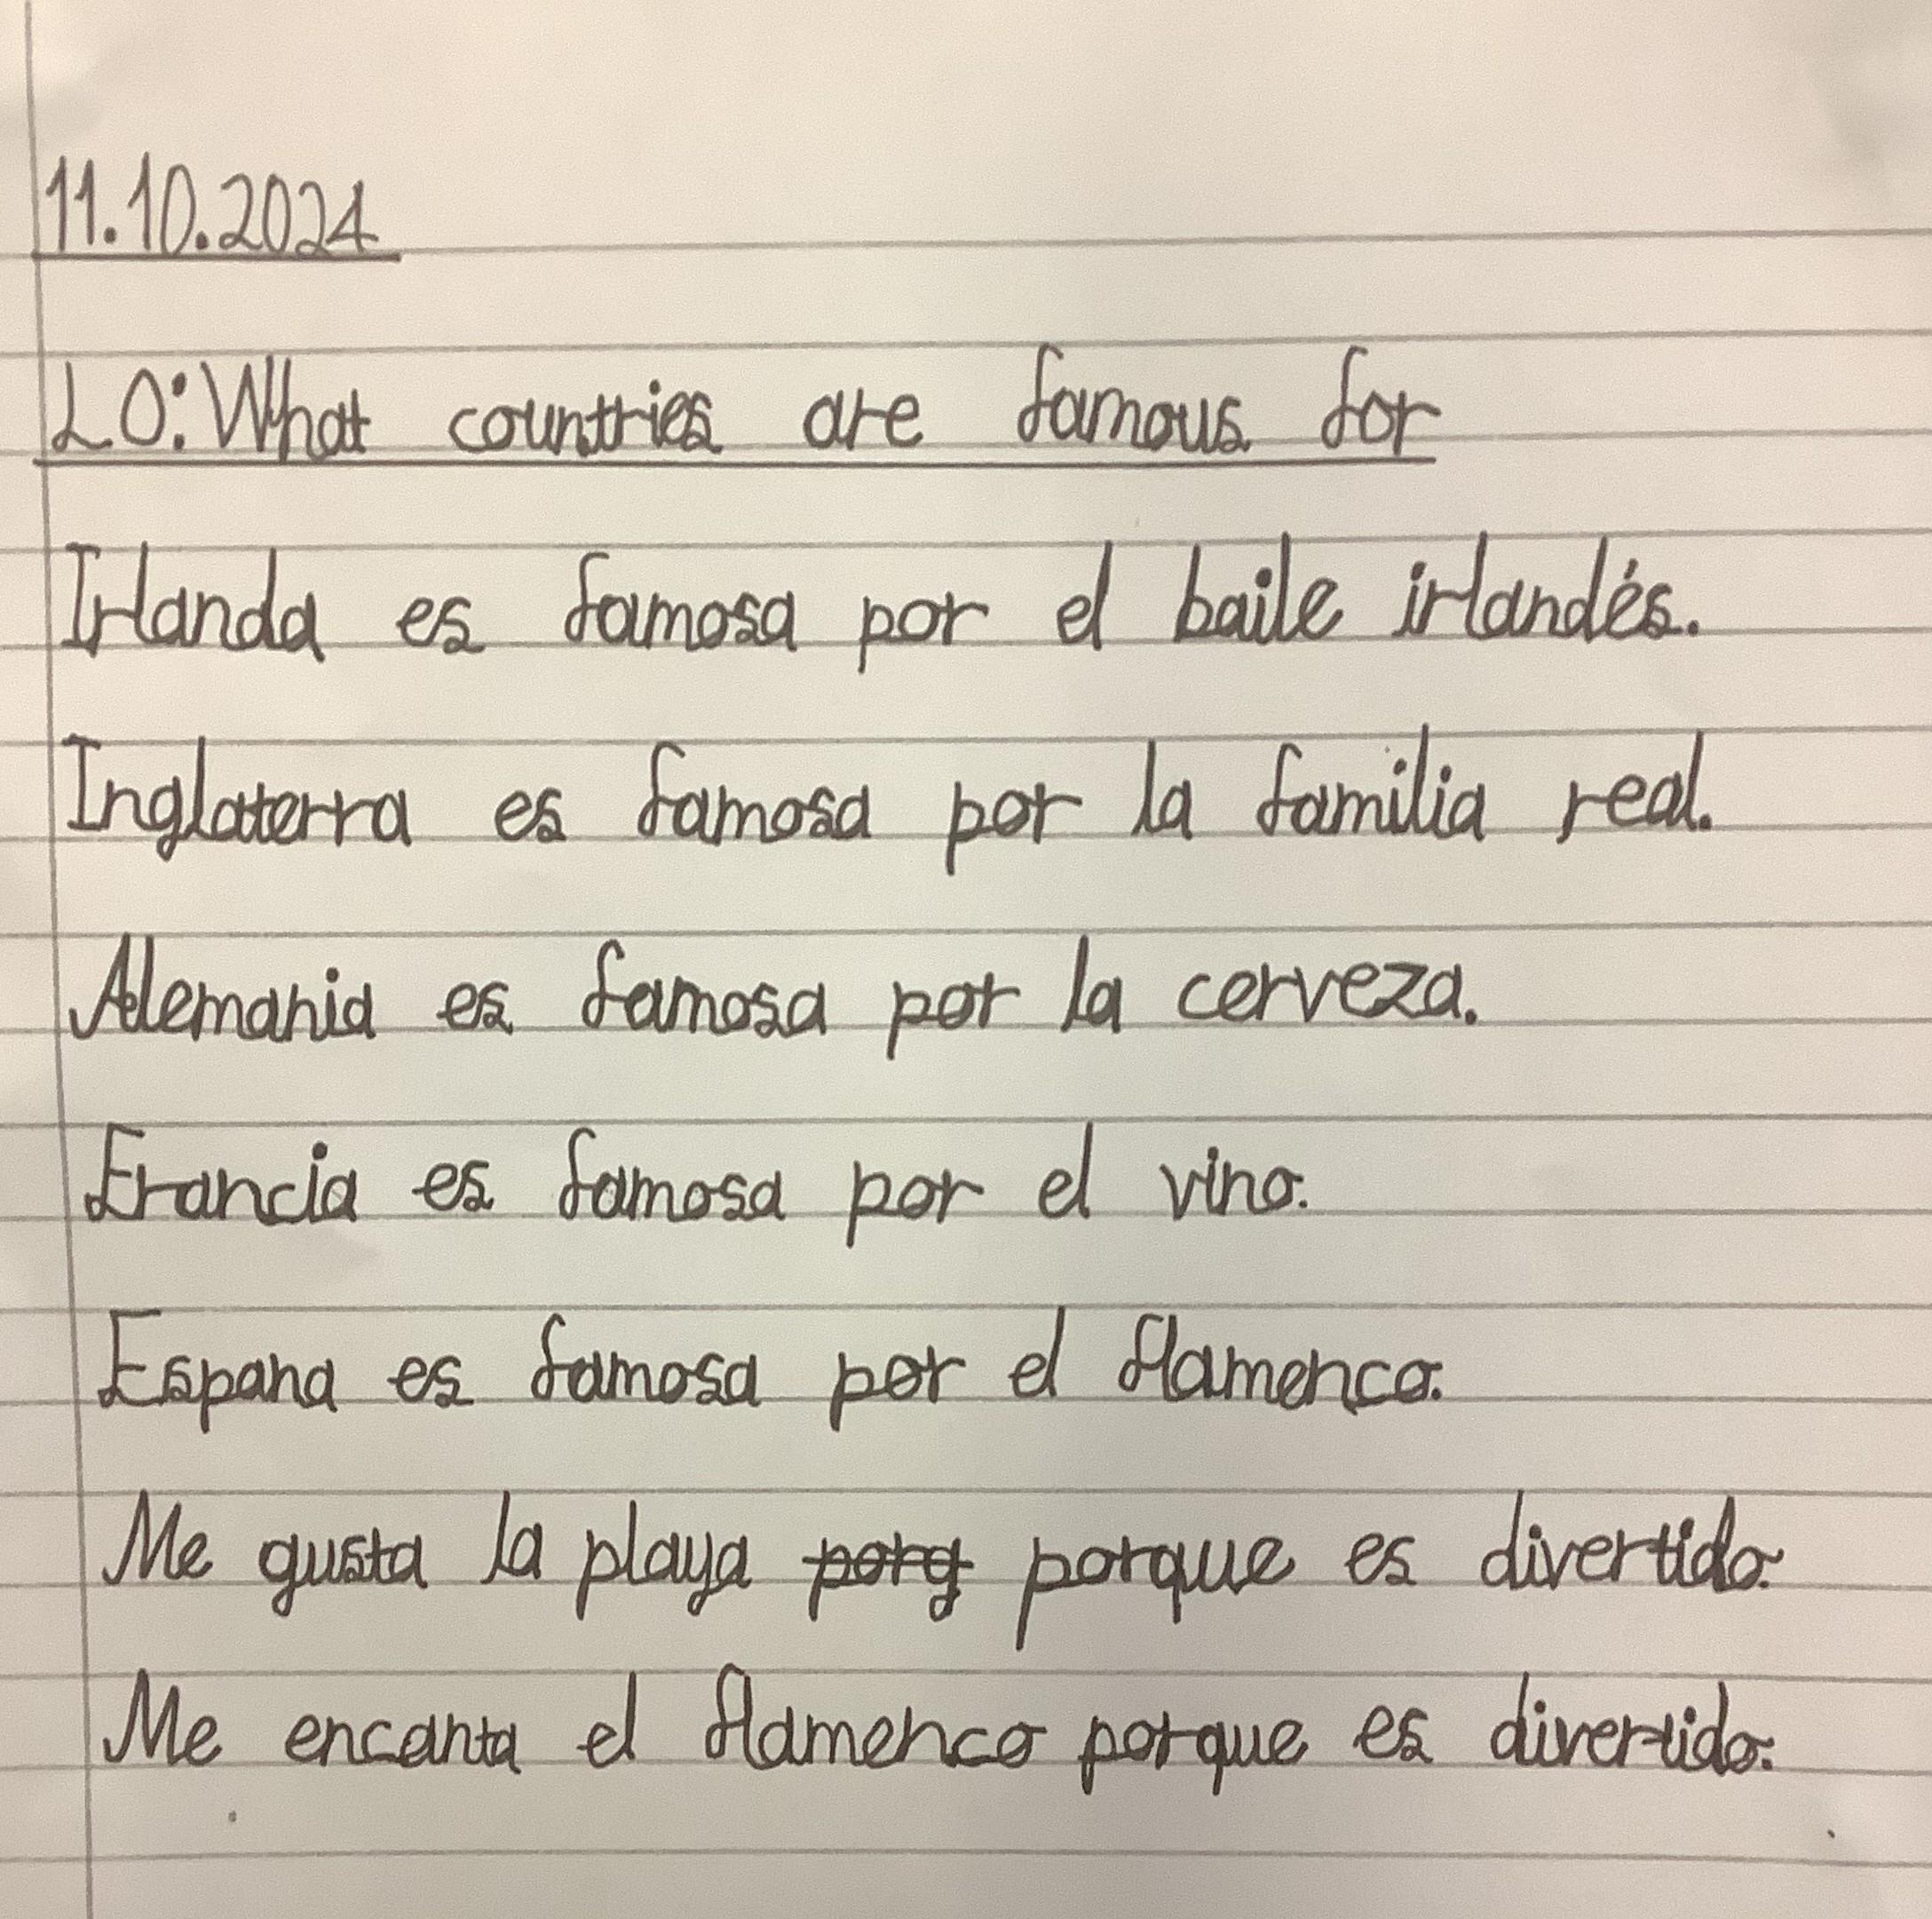 11.10.2024
LO: What countries are famous for
Irlanda es famosa por el baile irlandés.
Inglaterra es famosa por la familia real.
Alemania es famosa por la cerveza.
Francia es famosa por el vino.
Espana es famosa por el flamenco.
Me gusta la playa porq porque es divertido.
Me encanta el flamenco porque es divertido.